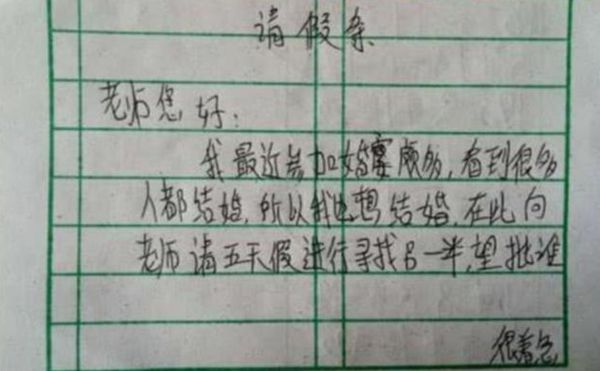 请假条
老师您好：
我最近参加婚宴颇多，看到很多
人都结婚，所以我也想结婚，在此向
老师请五天假进行寻找另一半，望批准
很着急